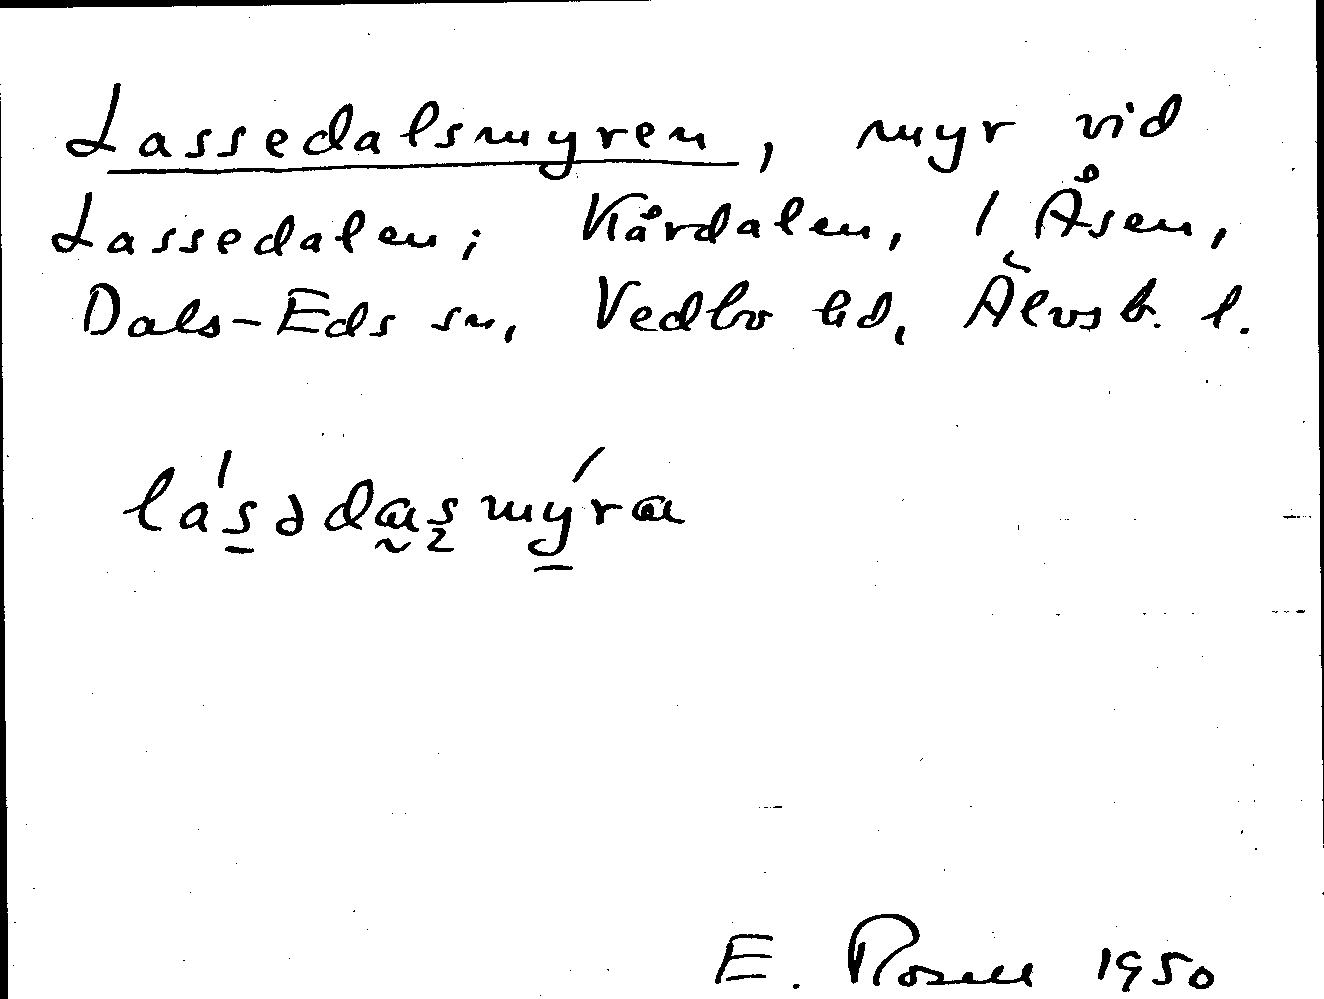 Lassedalsmyren, myr vid
Lassedalen; Kårdalen, 1 Åsen,
Dals-Eds sn, Vedbo hd, Älvsb. l.
lásədasmýra
E. Rosell 1950